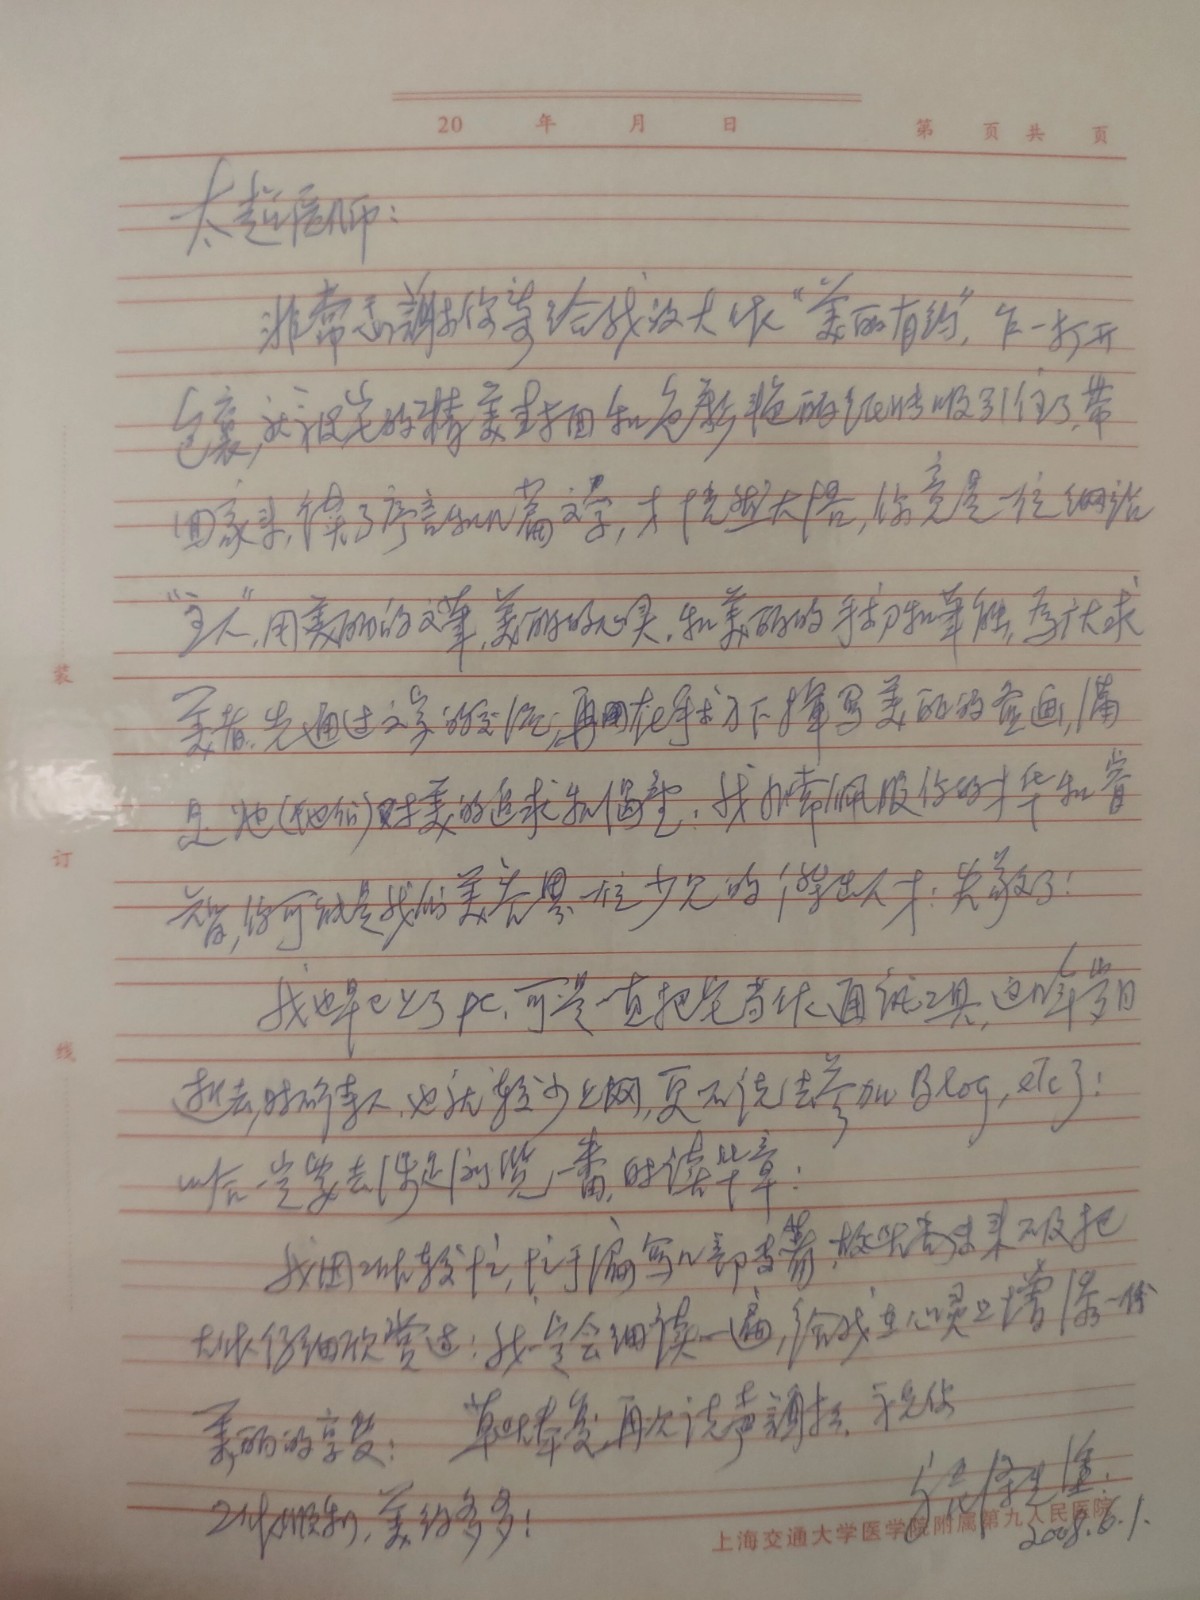 20 年 月 日 第 页共 页
太超医师：
非常感謝你寄给我的大作“美丽有约”，乍一打开
包裹，就被它的精美封面和色彩艳丽的所吸引住了，带
回家来，读了序言和几篇文字，才恍然大悟，你竟是一位网站
“主人”，用美丽的文筆，美丽的心灵，和美丽的手术和筆触，为广大求
美者，先通过文字的交流；再用手术刀下揮写美丽的画，满
足她（他们）对美的追求和渴望；我非常佩服你的才华和睿
智，你可能是我们美容界一位少见的傑出人才；失敬了！
我也早已上了pc，可是一直把它当作通讯工具，这几年岁月
逝去，时不待人，也就较少上网，更不说去参加Blog，etc了！
以后一定要去浏览一番，时读华章；
我因工作较忙，忙于编写几部专著，故未来及把
大作仔细欣赏过；我一定会细读一遍，给我在心灵上增添一份
美丽的享受； 草此奉复，再次说声謝謝，祝你
工作顺利，美约多多！
2008.6.1.
上海交通大学医学院附属第九人民医院
装
订
线